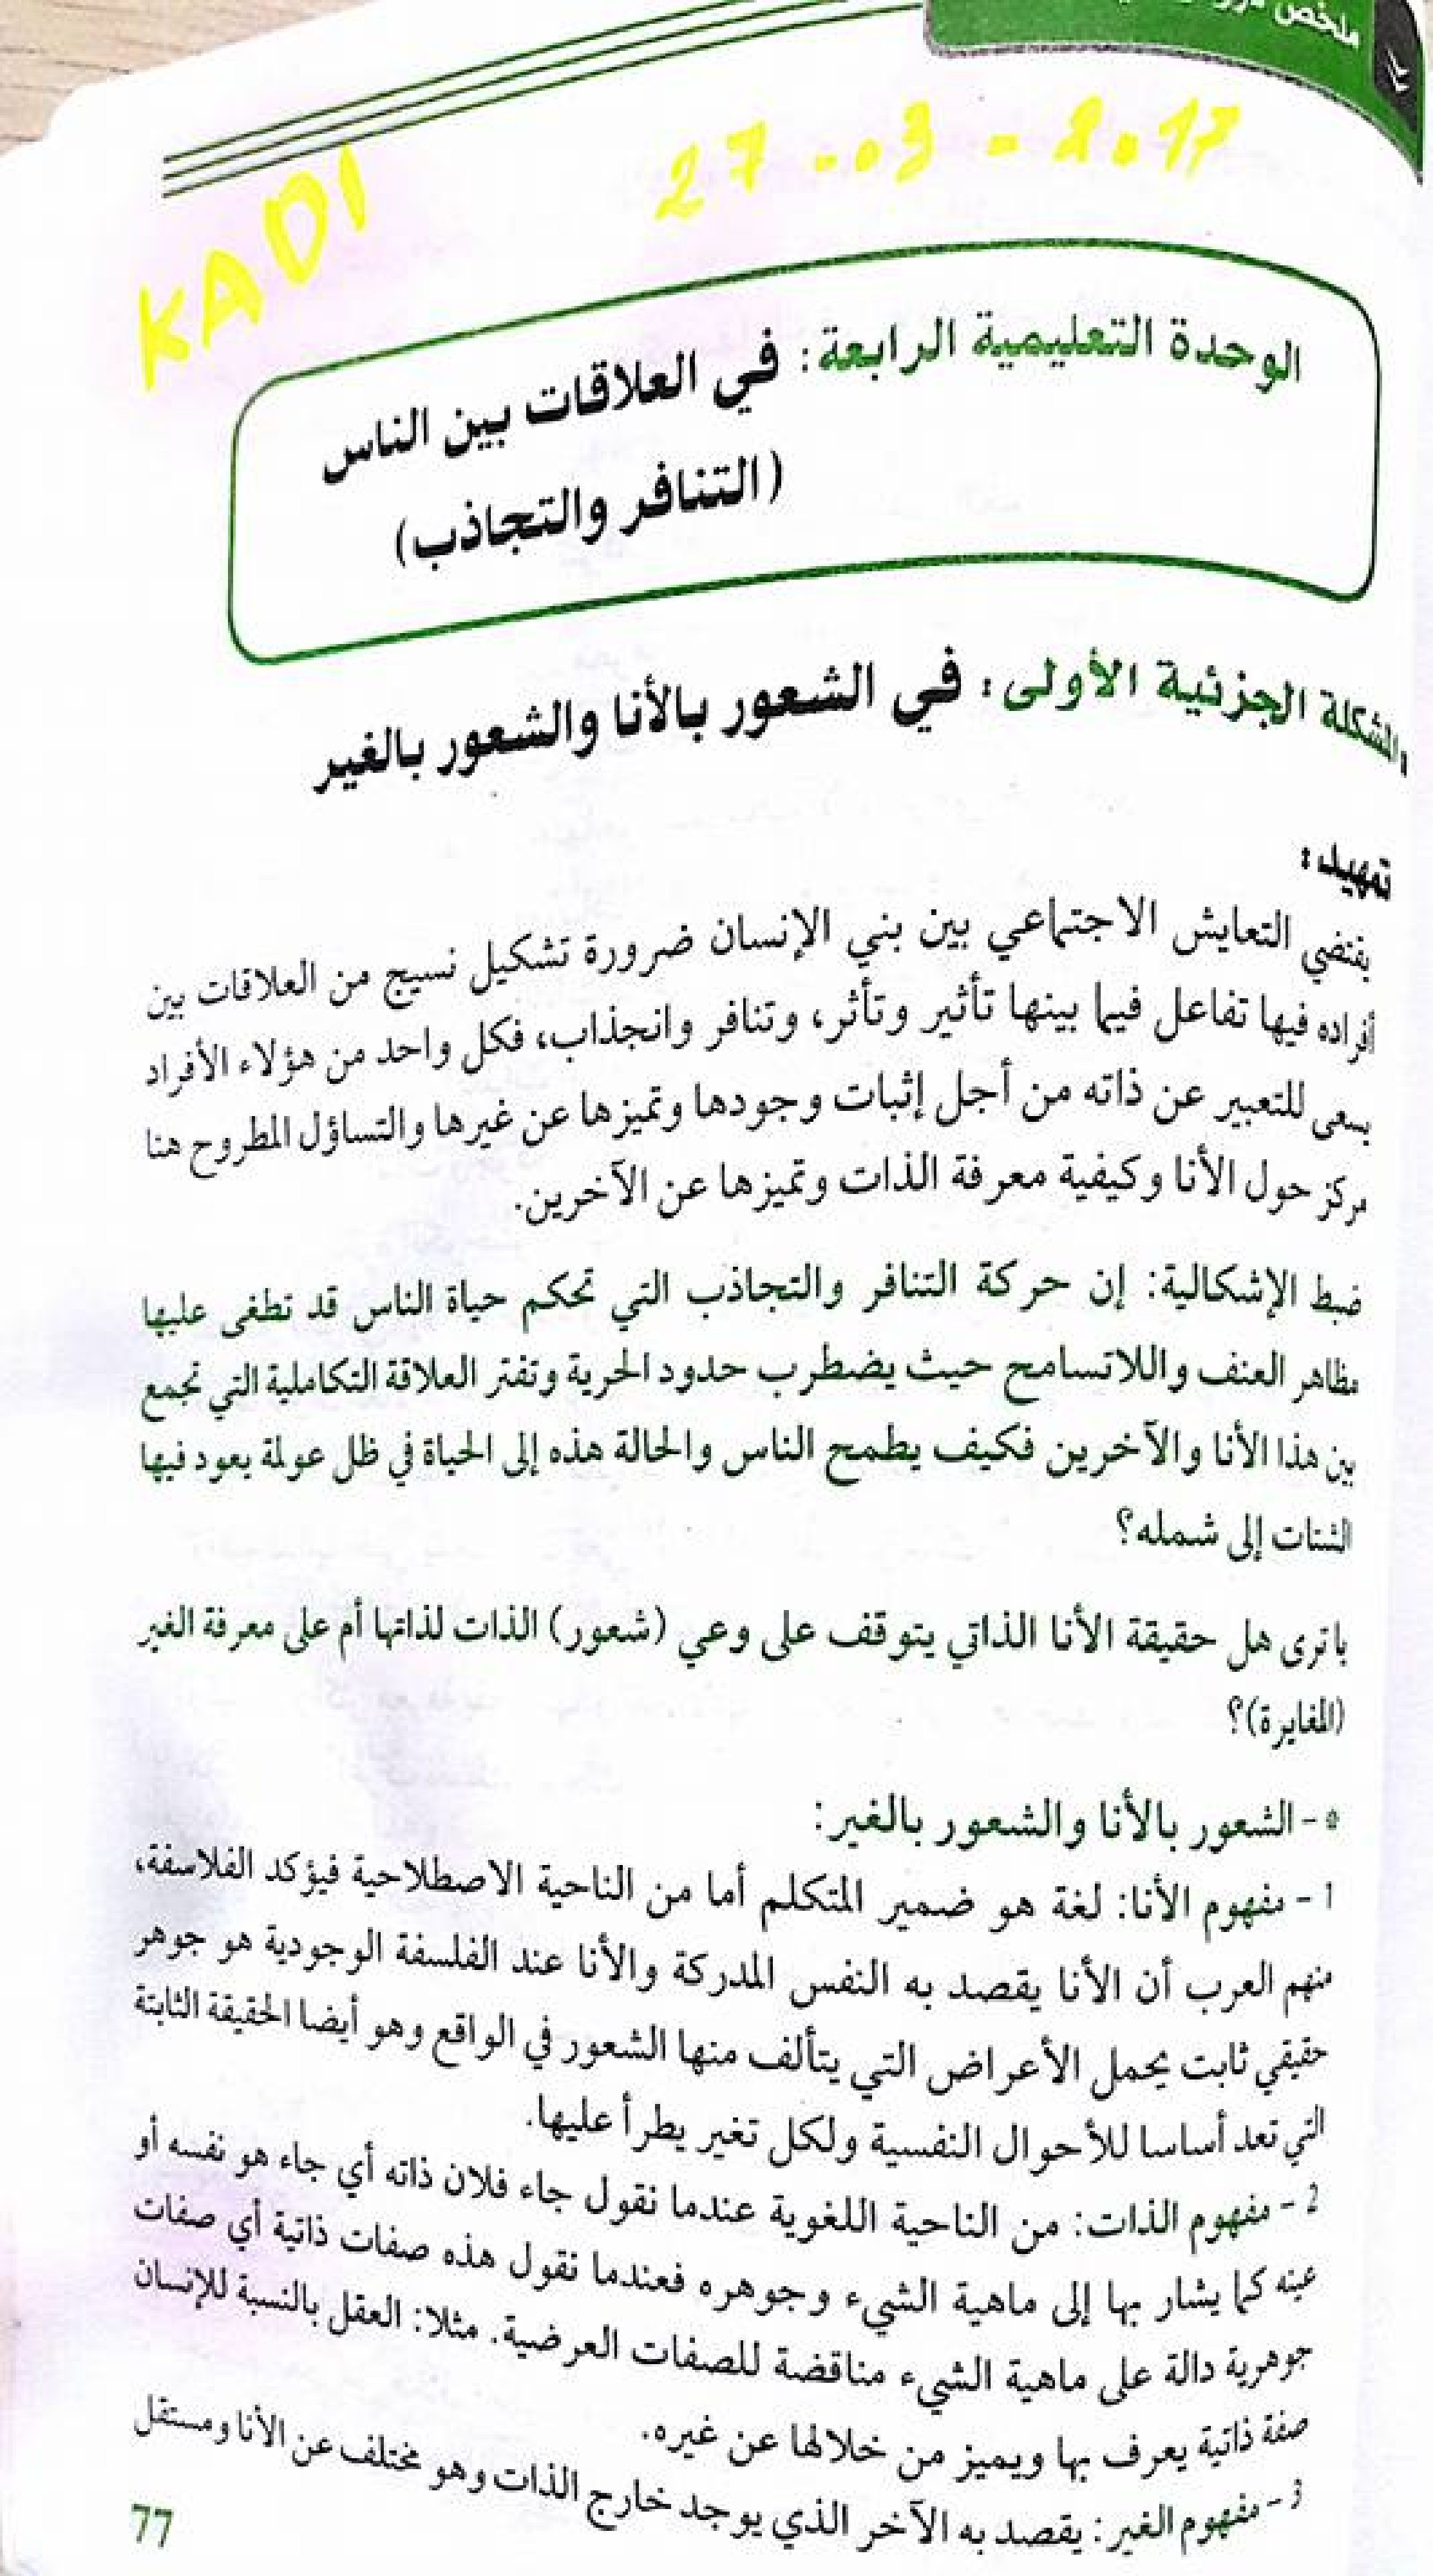 ملخص
27-03-2017
KADI
الوحدة التعليمية الرابعة: في العلاقات بين الناس
(التنافر والتجاذب)
المشكلة الجزئية الأولى: في الشعور بالأنا والشعور بالغير
تمهيد:
يقتضي التعايش الاجتماعي بين بني الإنسان ضرورة تشكيل نسيج من العلاقات بين
أفراده فيها تفاعل فيما بينها تأثير وتأثر، وتنافر وانجذاب، فكل واحد من هؤلاء الأفراد
يسعى للتعبير عن ذاته من أجل إثبات وجودها وتميزها عن غيرها والتساؤل المطروح هنا
مركز حول الأنا وكيفية معرفة الذات وتميزها عن الآخرين.
ضبط الإشكالية: إن حركة التنافر والتجاذب التي تحكم حياة الناس قد تطغى عليها
مظاهر العنف واللاتسامح حيث يضطرب حدود الحرية وتفتر العلاقة التكاملية التي تجمع
بين هذا الأنا والآخرين فكيف يطمح الناس والحالة هذه إلى الحياة في ظل عولمة يعود فيها
الشتات إلى شمله؟
يا ترى هل حقيقة الأنا الذاتي يتوقف على وعي (شعور) الذات لذاتها أم على معرفة الغير
(المغايرة)؟
* - الشعور بالأنا والشعور بالغير:
1 - مفهوم الأنا: لغة هو ضمير المتكلم أما من الناحية الاصطلاحية فيؤكد الفلاسفة،
منهم العرب أن الأنا يقصد به النفس المدركة والأنا عند الفلسفة الوجودية هو جوهر
حقيقي ثابت يحمل الأعراض التي يتألف منها الشعور في الواقع وهو أيضا الحقيقة الثابتة
التي تعد أساسا للأحوال النفسية ولكل تغير يطرأ عليها.
2 - مفهوم الذات: من الناحية اللغوية عندما نقول جاء فلان ذاته أي جاء هو نفسه أو
عينه كما يشار بها إلى ماهية الشيء وجوهره فعندما نقول هذه صفات ذاتية أي صفات
جوهرية دالة على ماهية الشيء مناقضة للصفات العرضية. مثلا: العقل بالنسبة للإنسان
صفة ذاتية يعرف بها ويميز من خلالها عن غيره.
3 - مفهوم الغير: يقصد به الآخر الذي يوجد خارج الذات وهو مختلف عن الأنا ومستقل
77